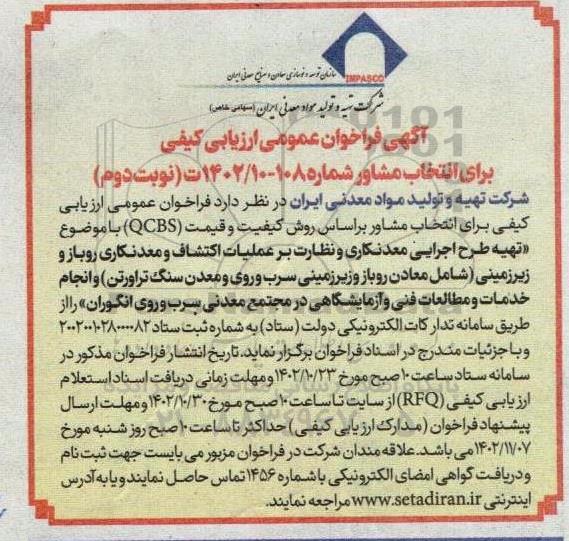 IMPASCO
سازمان توسعه و نوسازی معادن و صنایع معدنی ایران
شرکت تهیه و تولید مواد معدنی ایران (سهامی خاص)
آگهی فراخوان عمومی ارزیابی کیفی
برای انتخاب مشاور شماره ۱۰۸-۱۴۰۲/۱۰ت (نوبت دوم)
شرکت تهیه و تولید مواد معدنی ایران در نظر دارد فراخوان عمومی ارزیابی
کیفی برای انتخاب مشاور براساس روش کیفیت و قیمت (QCBS) با موضوع
«تهیه طرح اجرایی معدنکاری و نظارت بر عملیات اکتشاف و معدنکاری روباز و
زیرزمینی (شامل معادن روباز و زیرزمینی سرب و روی و معدن سنگ تراورتن) و انجام
خدمات و مطالعات فنی و آزمایشگاهی در مجتمع معدنی سرب و روی انگوران» را از
طریق سامانه تدارکات الکترونیکی دولت (ستاد) به شماره ثبت ستاد ۲۰۰۲۰۰۱۰۲۸۰۰۰۰۸۲
و با جزئیات مندرج در اسناد فراخوان برگزار نماید. تاریخ انتشار فراخوان مذکور در
سامانه ستاد ساعت ۱۰ صبح مورخ ۱۴۰۲/۱۰/۲۳ و مهلت زمانی دریافت اسناد استعلام
ارزیابی کیفی (RFQ) از سایت تا ساعت ۱۰ صبح مورخ ۱۴۰۲/۱۰/۳۰ و مهلت ارسال
پیشنهاد فراخوان (مدارک ارزیابی کیفی) حداکثر تا ساعت ۱۰ صبح روز شنبه مورخ
۱۴۰۲/۱۱/۰۷ می باشد. علاقه مندان شرکت در فراخوان مزبور می بایست جهت ثبت نام
و دریافت گواهی امضای الکترونیکی با شماره ۱۴۵۶ تماس حاصل نمایند و یا به آدرس
اینترنتی www.setadiran.ir مراجعه نمایند.